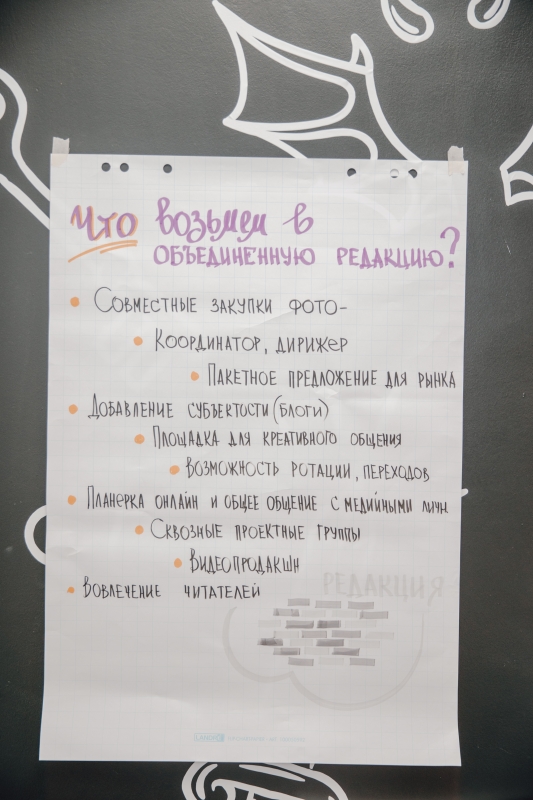 Что возьмем в
объединенную редакцию?
• Совместные закупки фото-
• Координатор, дирижер
• Пакетное предложение для рынка
• Добавление субъектости (блоги)
• Площадка для креативного общения
• Возможность ротации, переходов
• Планерка онлайн и общее общение с медийными личн
• Сквозные проектные группы
• Видеопродакшн
• Вовлечение читателей
РЕДАКЦИЯ